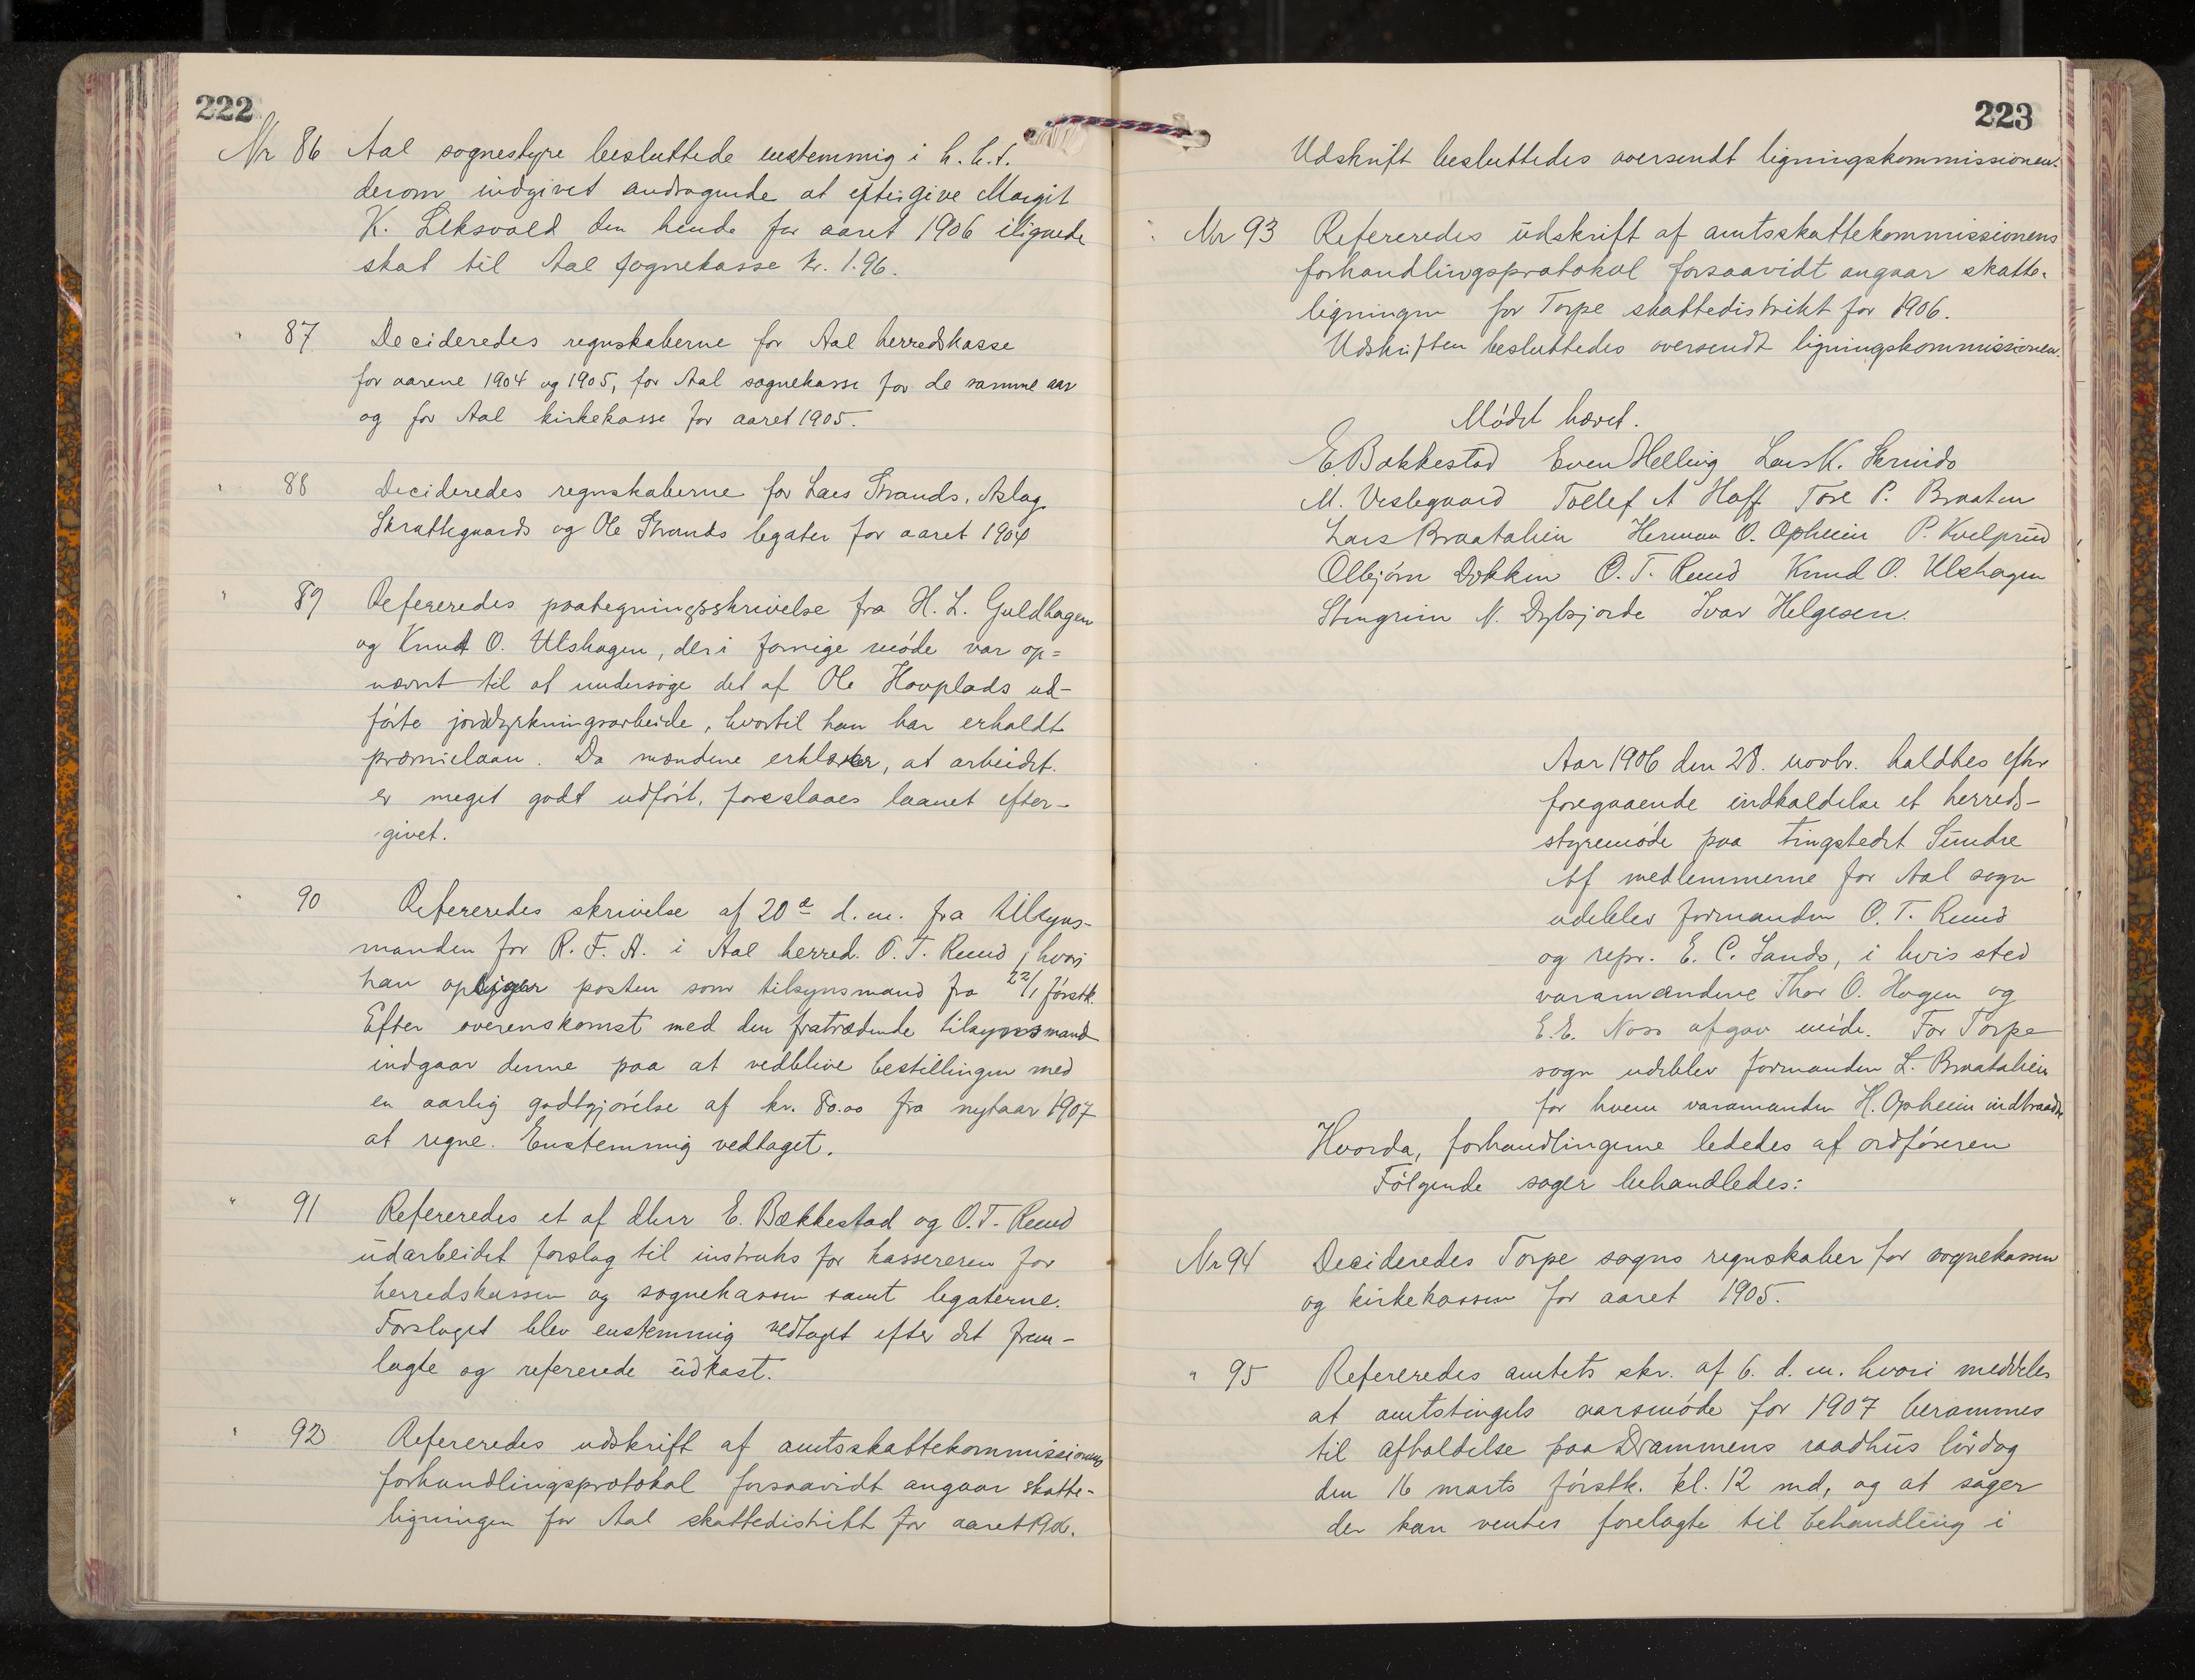 222
Nr 86 Aal sognestyre besluttede enstemmig i h. t. t.
derom indgivet andragende at eftergive Margit
K. Leksvold den hende for aaret 1906 ilignede
skat til Aal sognekasse kr. 1.96.
" 87 Decideredes regnskaberne for Aal herredskasse
for aarene 1904 og 1905, for Aal sognekasse for de samme aar
og for Aal kirkekasse for aaret 1905.
" 88 Decideredes regnskaberne for Lars Strands, Aslag
Skrattegaards og Ole Strands legater for aaret 1904
" 89 Refereredes paategningsskrivelse fra H. L. Guldhagen
og Knut O. Ulshagen, der i forrige møde var op=
nævnt til at undersøge det af Ole Hovplads ud-
førte jorddyrkningsarbeide, hvortil han har erholdt
præmielaan. Da mændene erklærer, at arbeidet
er meget godt udført, foreslaaes laanet efter-
givet.
" 90 Refereredes skrivelse af 20de d. m. fra tilsyns-
manden for R. F. A. i Aal herred. O. T. Ruud, hvori
han opsiger posten som tilsynsmand fra 22/1 førstk.
Efter overenskomst med den fratrædende tilsynsmand
indgaar denne paa at vedblive bestillingen med
en aarlig godtgjørelse af kr. 80.00 fra nytaar 1907
at regne. Enstemmig vedtaget.
" 91 Refereredes et af dhrr E. Bækkestad og O. T. Ruud
udarbeidet forslag til instruks for kassereren for
herredskassen og sognekassen samt legaterne.
Forslaget blev enstemmig vedtaget efter det frem-
lagte og refererede udkast.
" 92 Refereredes udskrift af amtsskattekommissionens
forhandlingsprotokol forsaavidt angaar skatte-
ligningen for Aal skattedistrikt for aaret 1906.
223
Udskrift besluttedes oversendt ligningskommissionen.
" Nr 93 Refereredes udskrift af amtsskattekommissionens
forhandlingsprotokol forsaavidt angaar skatte-
ligningen for Torpe skattedistrikt for 1906.
Udskriften besluttedes oversendt ligningskommissionen.
Mødet hævet.
E. Bækkestad Even Helling Lars K. Skrindo
M. Veslegaard Tollef A Hoff Tore P. Braaten
Lars Braatalien Herman O. Opheim P. Kvelprud
Olbjørn Dokken O. T. Ruud Knud O. Ulshagen
Stengrim N. Dybsjorde Ivar Helgesen.
Aar 1906 den 28. novbr. holdtes efter
foregaaende indkaldelse et herreds-
styremøde paa tingstedet Sundre
Af medlemmerne for Aal sogn
udeblev formanden O. T. Ruud
og repr. E. C. Sando, i hvis sted
varamændene Thor O. Hagen og
E. E. Noss afgav møde. For Torpe
sogn udeblev formanden L. Braatalien
for hvem varamanden H. Opheim indtraadte
Hvorda, forhandlingerne lededes af ordføreren
Følgende sager behandledes:
Nr 94 Decideredes Torpe sogns regnskaber for sognekassen
og kirkekassen for aaret 1905.
" 95 Refereredes amtets skr. af 6. d. m. hvori meddeles
at amtstingets aarsmøde for 1907 berammes
til afholdelse paa Drammens raadhus lørdag
den 16 marts førstk. kl. 12 md, og at sager
der kan ventes forelagte til behandling i